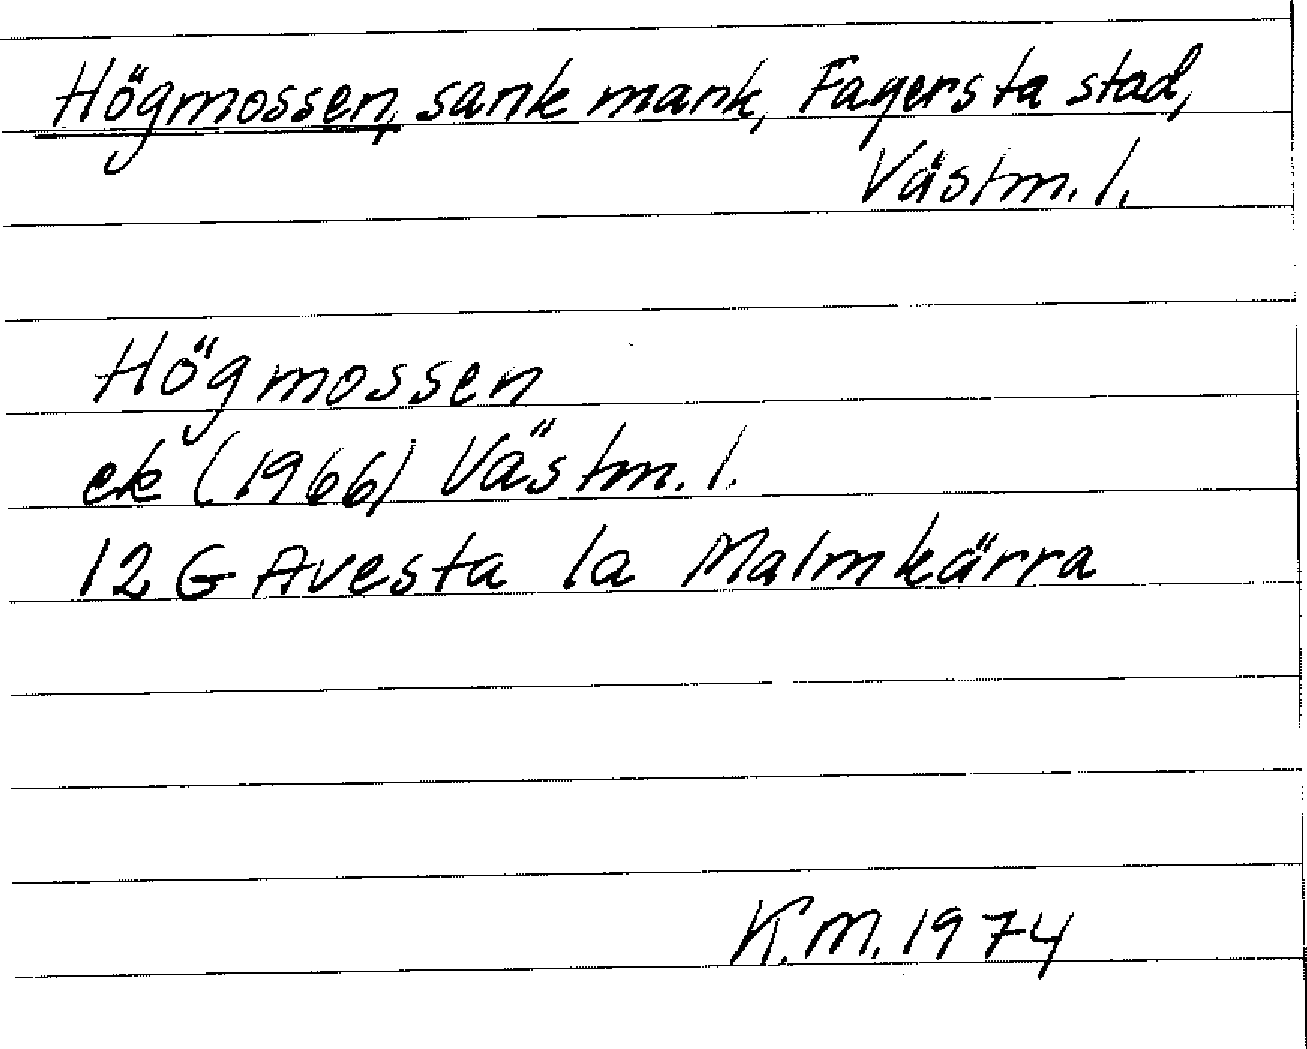 Högmossen, sank mark, Fagersta stad,
Västm. l.
Högmossen
ek (1966) Västm. l.
12 G Avesta 1a Malmkärra
K.M. 1974